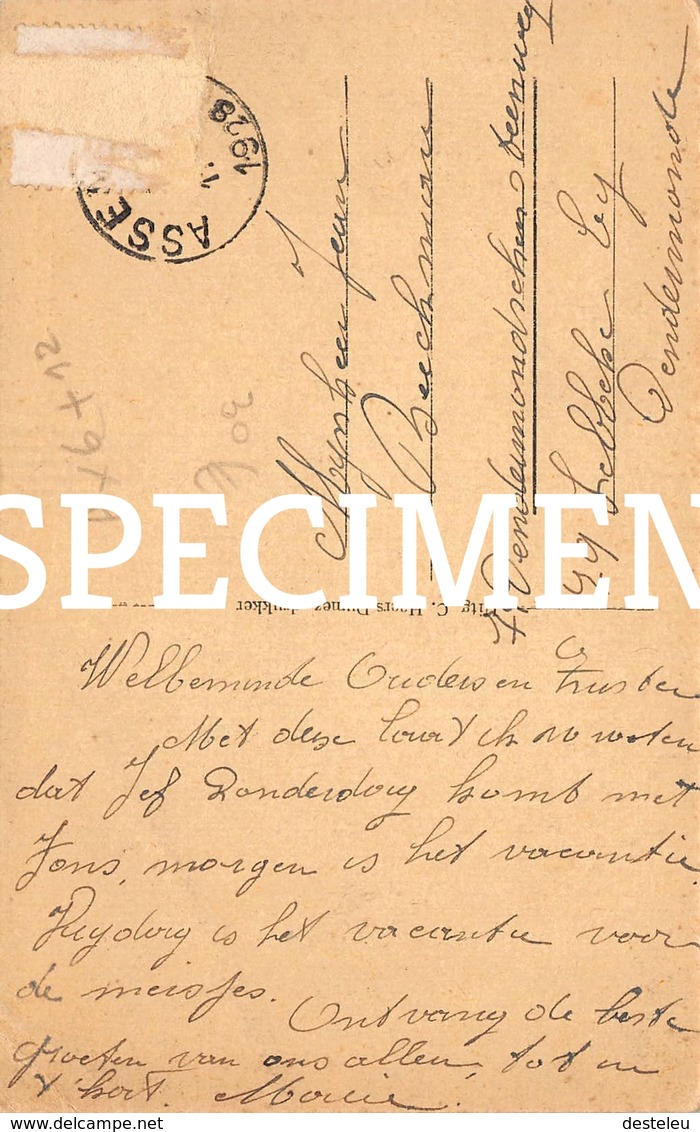 ASSE
1928
1
Mynheer Jean
Beeckman
Dendermondschen steenweg
99 Lebbeke by
Dendermonde
9x6+12
902
SPECIMEN
Uitg. C. Hoors Dumez, drukker
Welbeminde Ouders en Zuster
Met deze laat ik u weten
dat Jef Donderdag komt met
Fons, morgen is het vacantie.
Vrydag is het vacantie voor
de meisjes.
Ontvang de beste
groeten van ons allen, tot in
't kort. Marie.
delcampe.net
desteleu